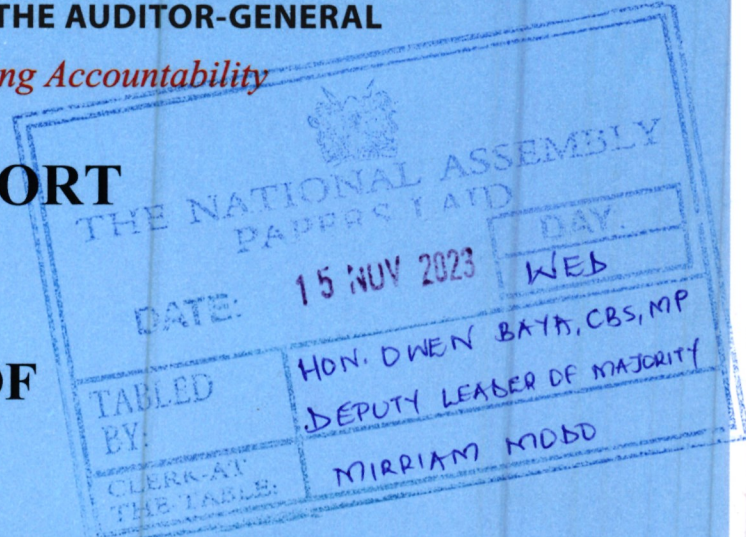 THE AUDITOR-GENERAL
ng Accountability
ORT
THE NATIONAL ASSEMBLY
PAPERS LAID
DAY.
DATE: 15 NOV 2023 WED
OF
TABLED BY: HON. OWEN BAYA, CBS, MP
DEPUTY LEADER OF MAJORITY
CLERK-AT
THE-TABLE: MIRRIAM MODO